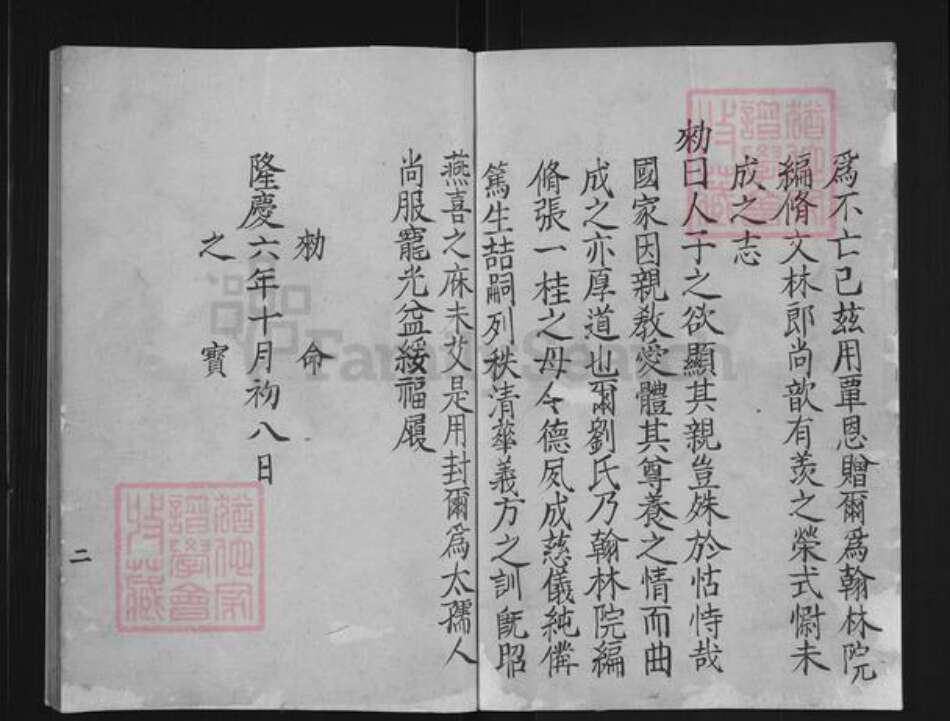 爲不亡已玆用覃恩贈爾爲翰林院
編脩文林郎尚歆有羨之榮式慰未
成之志
勑曰人子之欲顯其親豈殊於怙恃哉
國家因親敎愛體其尊養之情而曲
成之亦厚道也爾劉氏乃翰林院編
脩張一桂之母令德夙成慈儀純備
篤生喆嗣列秩清華義方之訓旣昭
燕喜之庥未艾是用封爾爲太孺人
尚服寵光益綏福履
勑命
隆慶六年十月初八日
之寶
二
FamilySearch